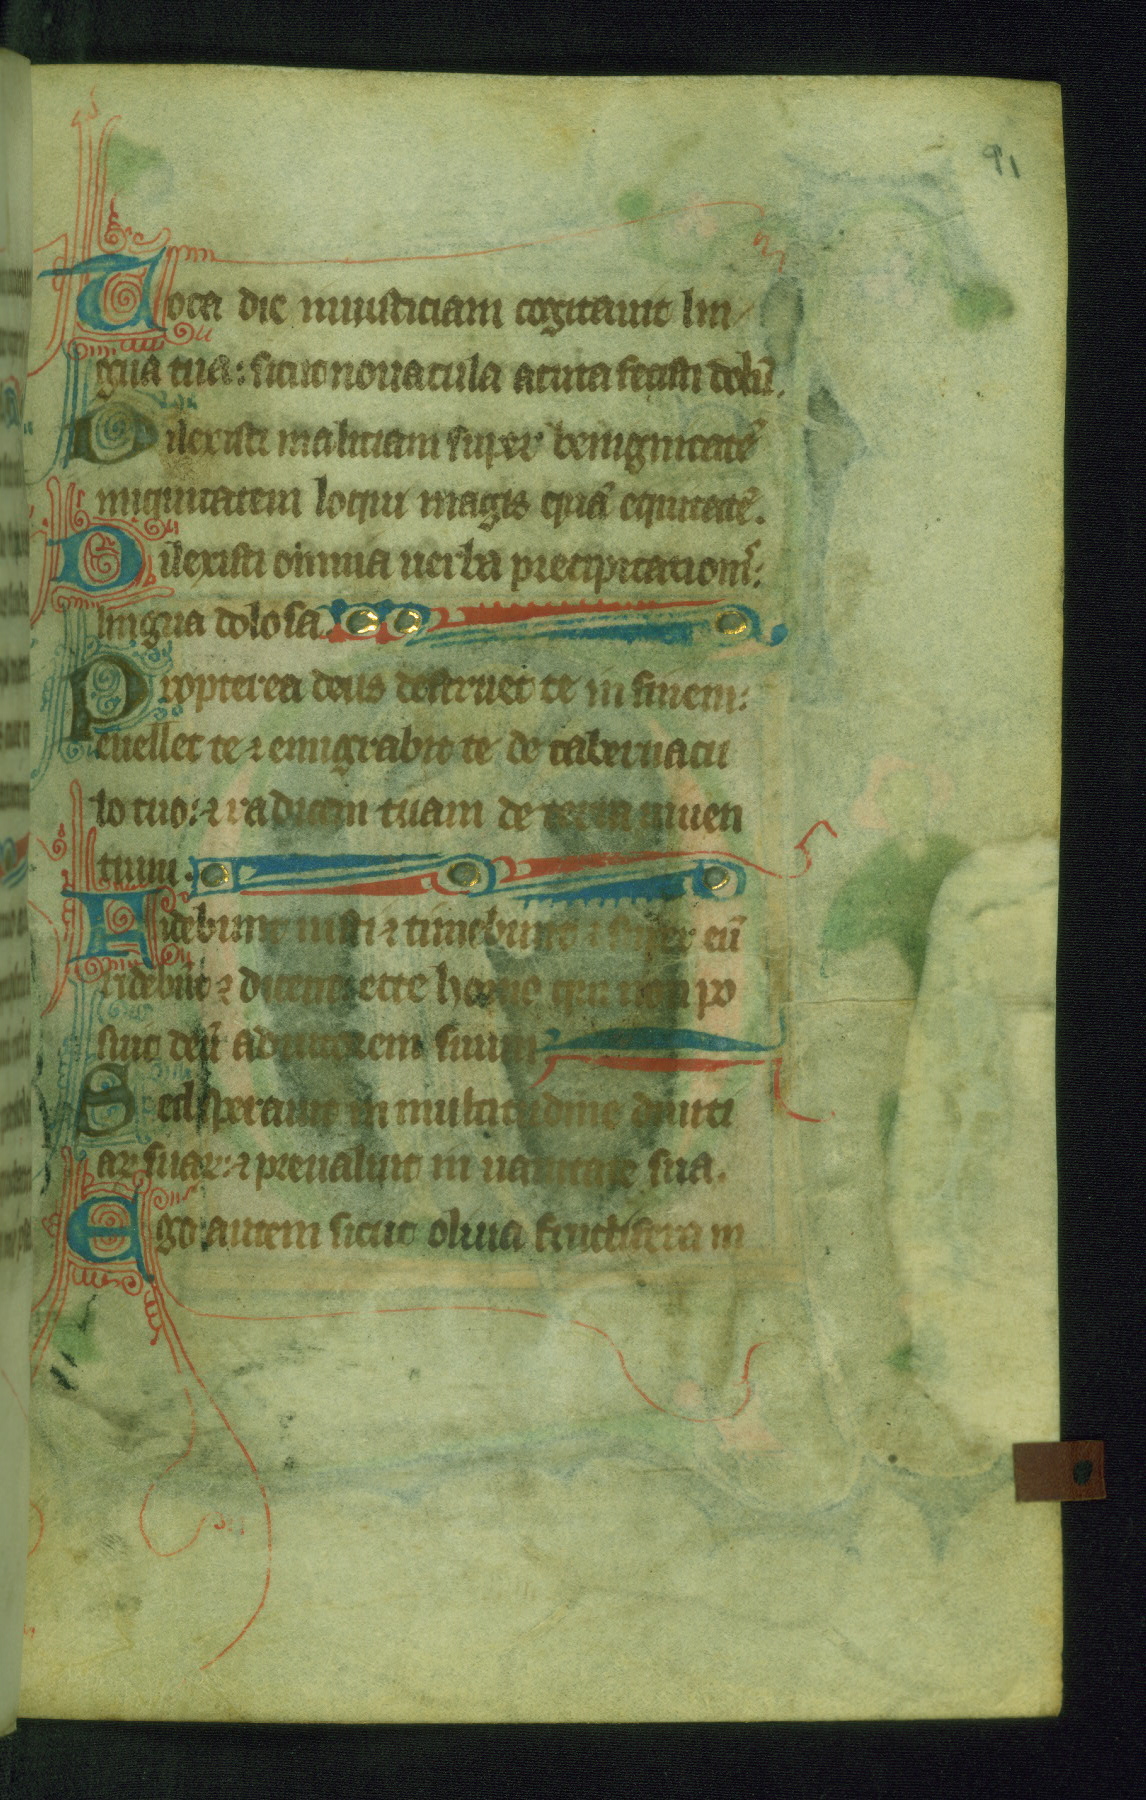 91
Tota die iniusticiam cogitauit lin
gua tua: sicut nouacula acuta fecisti dolū.
Dilexisti maliciam super benignitatē
iniquitatem loqui magis quā equitatē.
Dilexisti omnia uerba precipitationis:
lingua dolosa.
Propterea deus destruet te in finem:
euellet te ⁊ emigrabit te de tabernacu
lo tuo: ⁊ radicem tuam de terra uiuen
tium.
Uidebunt iusti ⁊ timebunt ⁊ super eū
ridebūt ⁊ dicent: ecce homo qui non po
suit deū adiutorem suum
Sed sperauit in multitudine diuiti
arū suarū: ⁊ preualuit in uanitate sua.
Ego autem sicut oliua fructifera in